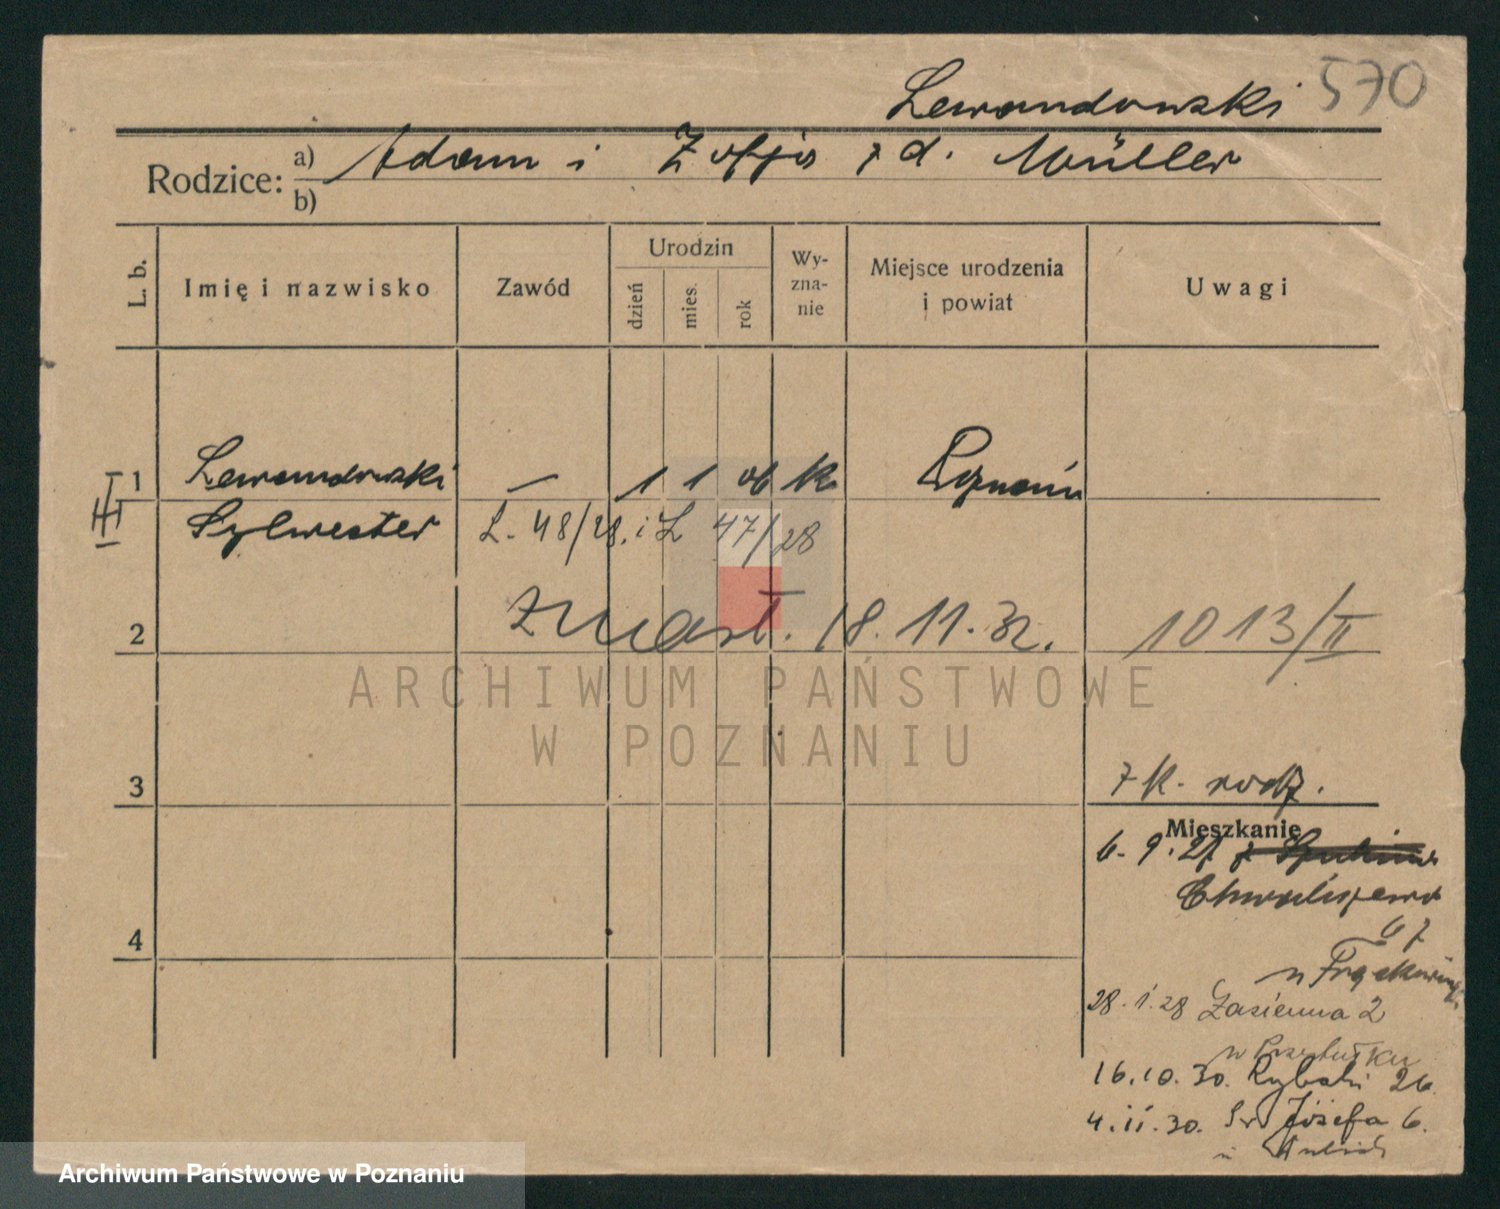 Lewandowski 570
Rodzice: a) Adam i Zofja z d. Müller
b)
L. b. Imię i nazwisko Zawód Urodzin dzień mies. rok Wy-zna-nie Miejsce urodzenia i powiat Uwagi
1 Lewandowski — 1 1 06 k Poznań
III
Sylwester L. 48/28. i L 47/28
2 zmarł. 18. 11. 32. 1013/II
ARCHIWUM PAŃSTWOWE
W POZNANIU
3 7 k. rodz.
Mieszkanie
6. 9. 27
Chwaliszewo
67
4
28. 1. 28 Zasienna 2
16.10.30. Rybaki 26
4.11.30. Św Józefa 6.
Archiwum Państwowe w Poznaniu